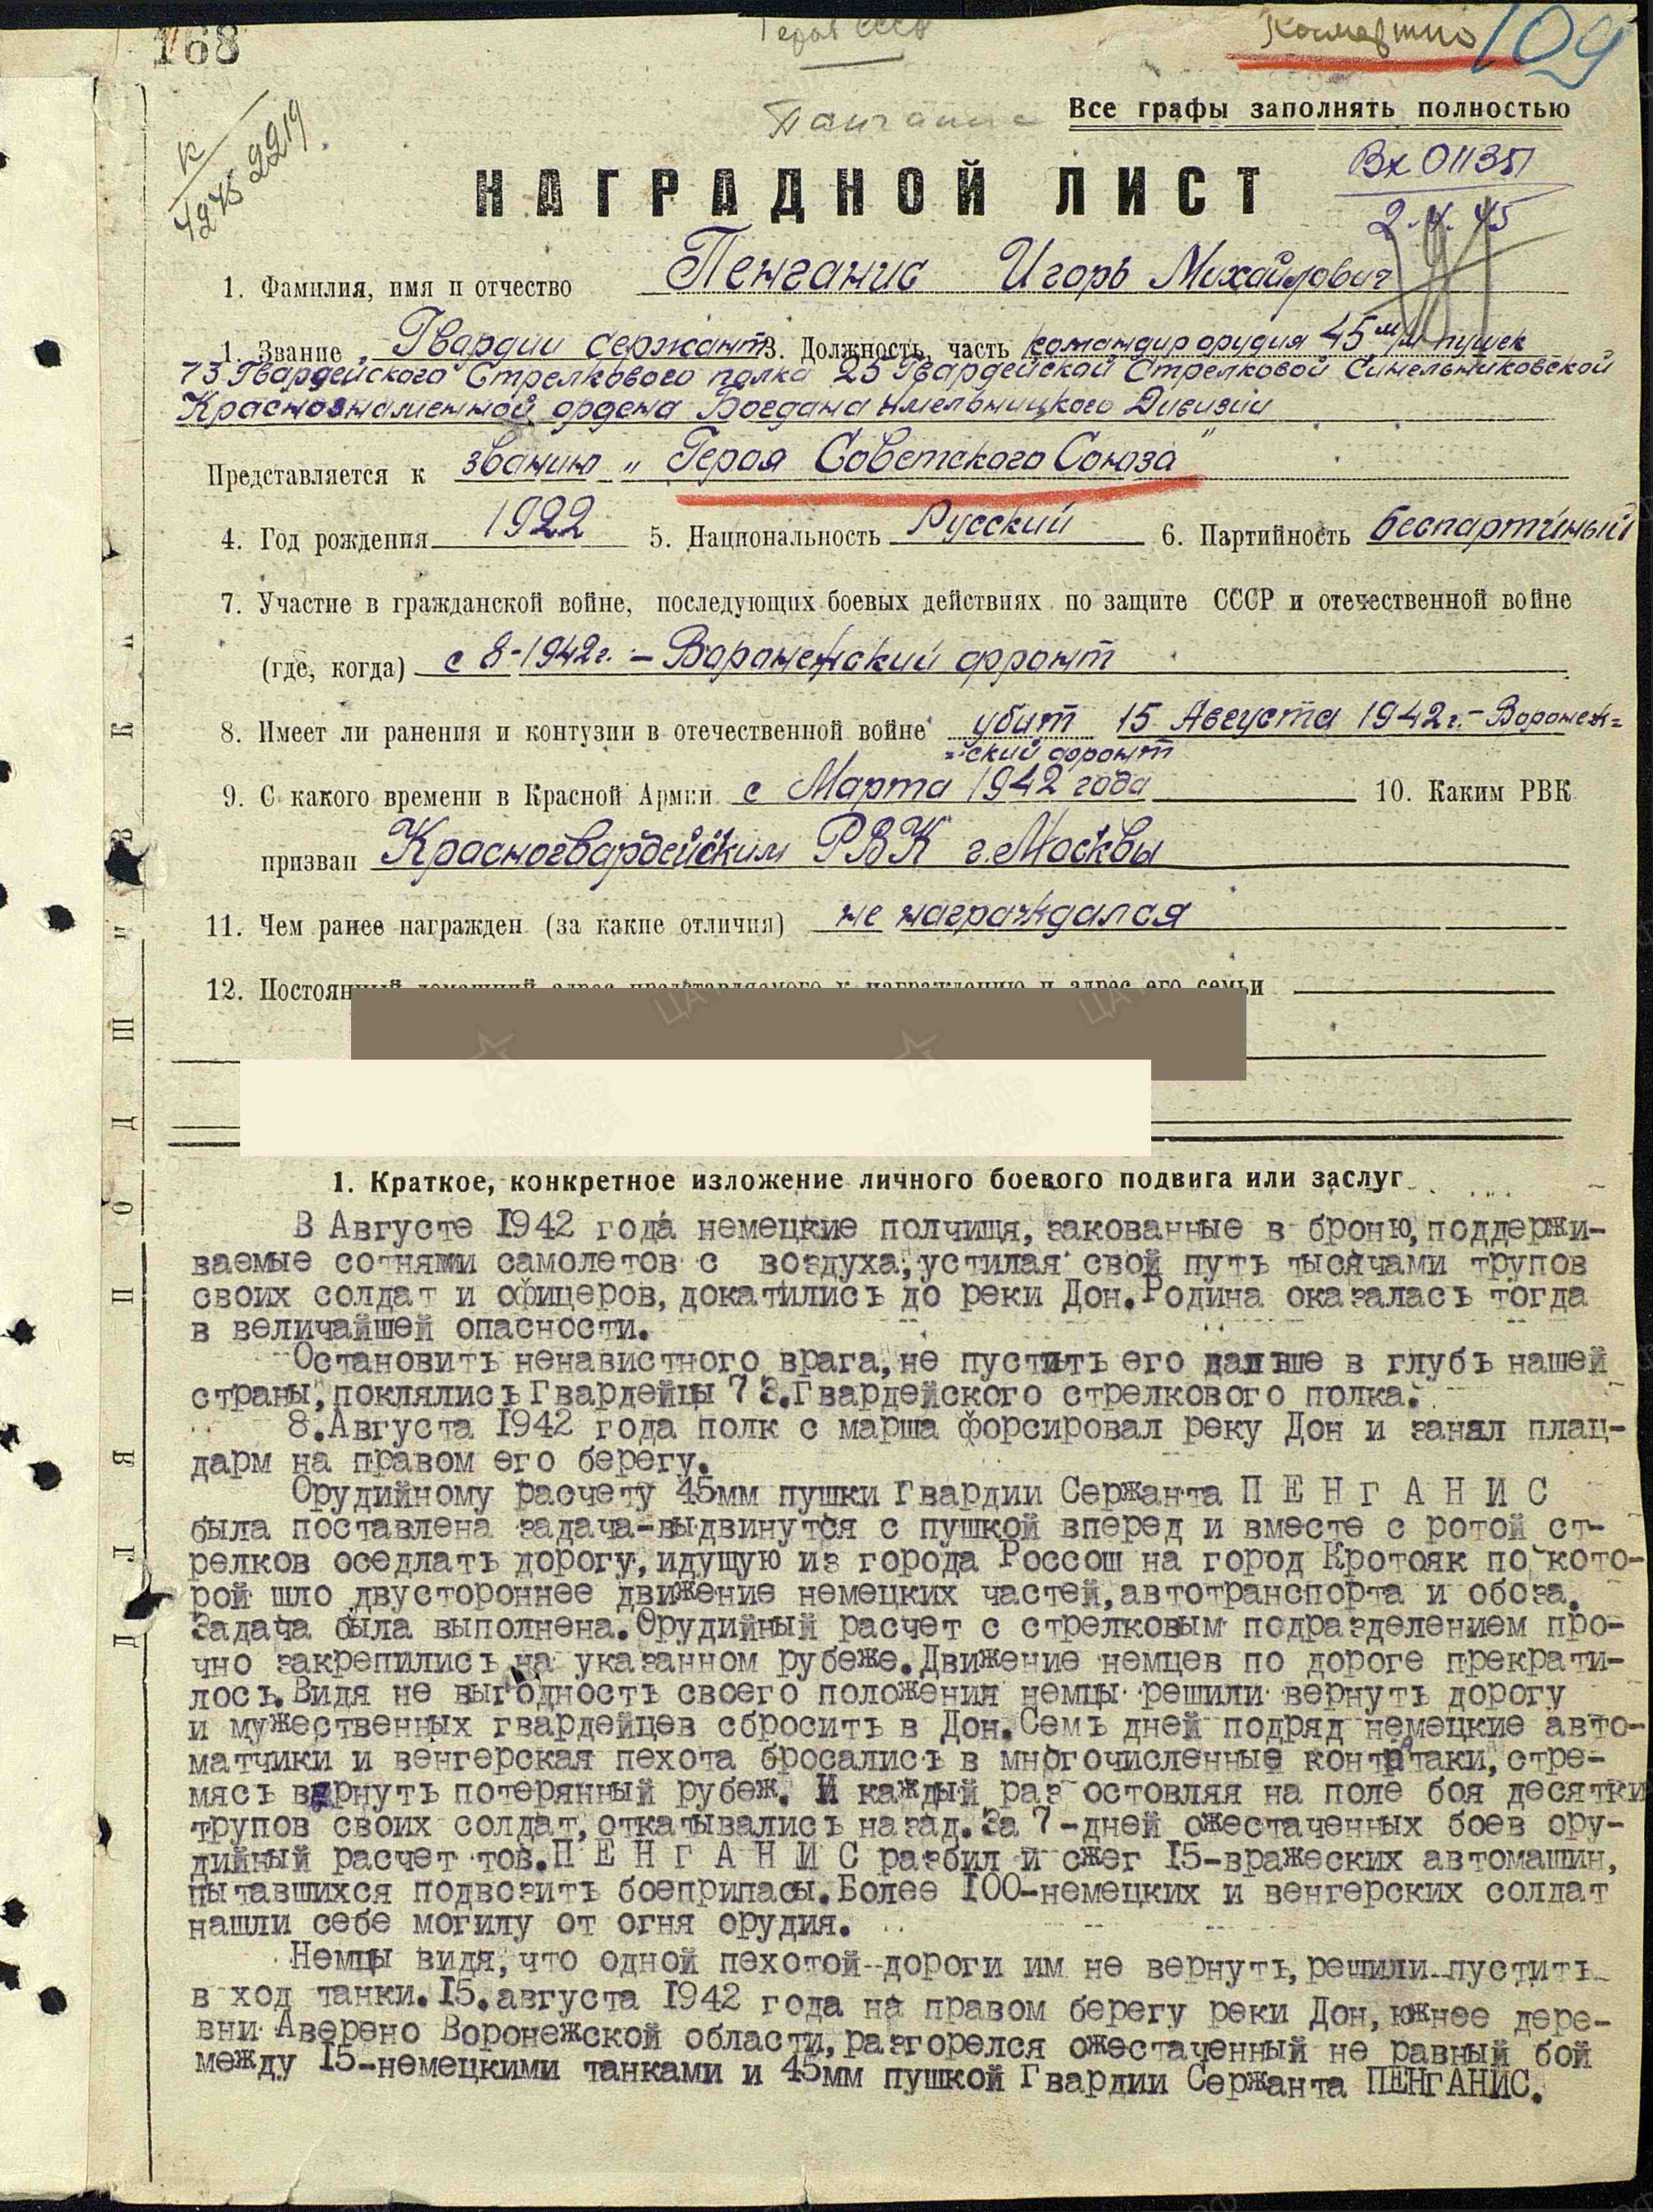 168
Героя СССР
Посмертно
109
Все графы заполнять полностью
К
4275 2219
НАГРАДНОЙ ЛИСТ
Вх 01135
2.4.45
1. Фамилия, имя и отчество Пенганис Игорь Михайлович
1. Звание Гвардии Сержант 3. Должность, часть командир орудия 45 м/м пушек
73 Гвардейского Стрелкового полка 25 Гвардейской Стрелковой Синельниковской
Краснознаменной ордена Богдана Хмельницкого Дивизии
Представляется к званию „Героя Советского Союза"
4. Год рождения 1922 5. Национальность Русский 6. Партийность беспартийный
7. Участие в гражданской войне, последующих боевых действиях по защите СССР и отечественной войне
(где, когда) с 8-1942г. – Воронежский фронт
8. Имеет ли ранения и контузии в отечественной войне убит 15 Августа 1942г.– Воронеж=
=ский фронт
9. С какого времени в Красной Армии с Марта 1942 года 10. Каким РВК
призван Красногвардейским РВК г. Москвы
11. Чем ранее награжден (за какие отличия) не награждался
12. Постоянный домашний адрес представляемого к награждению и адрес его семьи
1. Краткое, конкретное изложение личного боевого подвига или заслуг
В Августе 1942 года немецкие полчищя, закованные в броню, поддержи-
ваемые сотнями самолетов с воздуха, устилая свой путь тысячами трупов
своих солдат и офицеров, докатились до реки Дон. Родина оказалась тогда
в величайшей опасности.
Остановить ненавистного врага, не пустить его дальше в глубь нашей
страны, поклялись Гвардейцы 73.Гвардейского стрелкового полка.
8.Августа 1942 года полк с марша форсировал реку Дон и занял плац-
дарм на правом его берегу.
Орудийному расчету 45мм пушки Гвардии Сержанта П Е Н Г А Н И С
была поставлена задача-выдвинутся с пушкой вперед и вместе с ротой ст-
релков оседлать дорогу, идущую из города Россош на город Кротояк по кото-
рой шло двустороннее движение немецких частей, автотранспорта и обоза.
Задача была выполнена. Орудийный расчет с стрелковым подразделением про-
чно закрепились на указанном рубеже. Движение немцев по дороге прекрати-
лось. Видя не выгодность своего положения немцы решили вернуть дорогу
и мужественных гвардейцев сбросить в Дон. Семь дней подряд немецкие авто-
матчики и венгерская пехота бросались в многочисленные контратаки, стре-
мясь вернуть потерянный рубеж. И каждый раз остовляя на поле боя десятки
трупов своих солдат, откатывались назад. За 7-дней ожестаченных боев ору-
дийный расчет тов. П Е Н Г А Н И С разбил и сжег 15-вражеских автомашин,
пытавшихся подвозить боеприпасы. Более 100-немецких и венгерских солдат
нашли себе могилу от огня орудия.
Немцы видя, что одной пехотой дороги им не вернуть, решили пустить
в ход танки. 15.августа 1942 года на правом берегу реки Дон, южнее дере-
вни Аверено Воронежской области, разгорелся ожестаченный не равный бой
между 15-немецкими танками и 45мм пушкой Гвардии Сержанта ПЕНГАНИС.